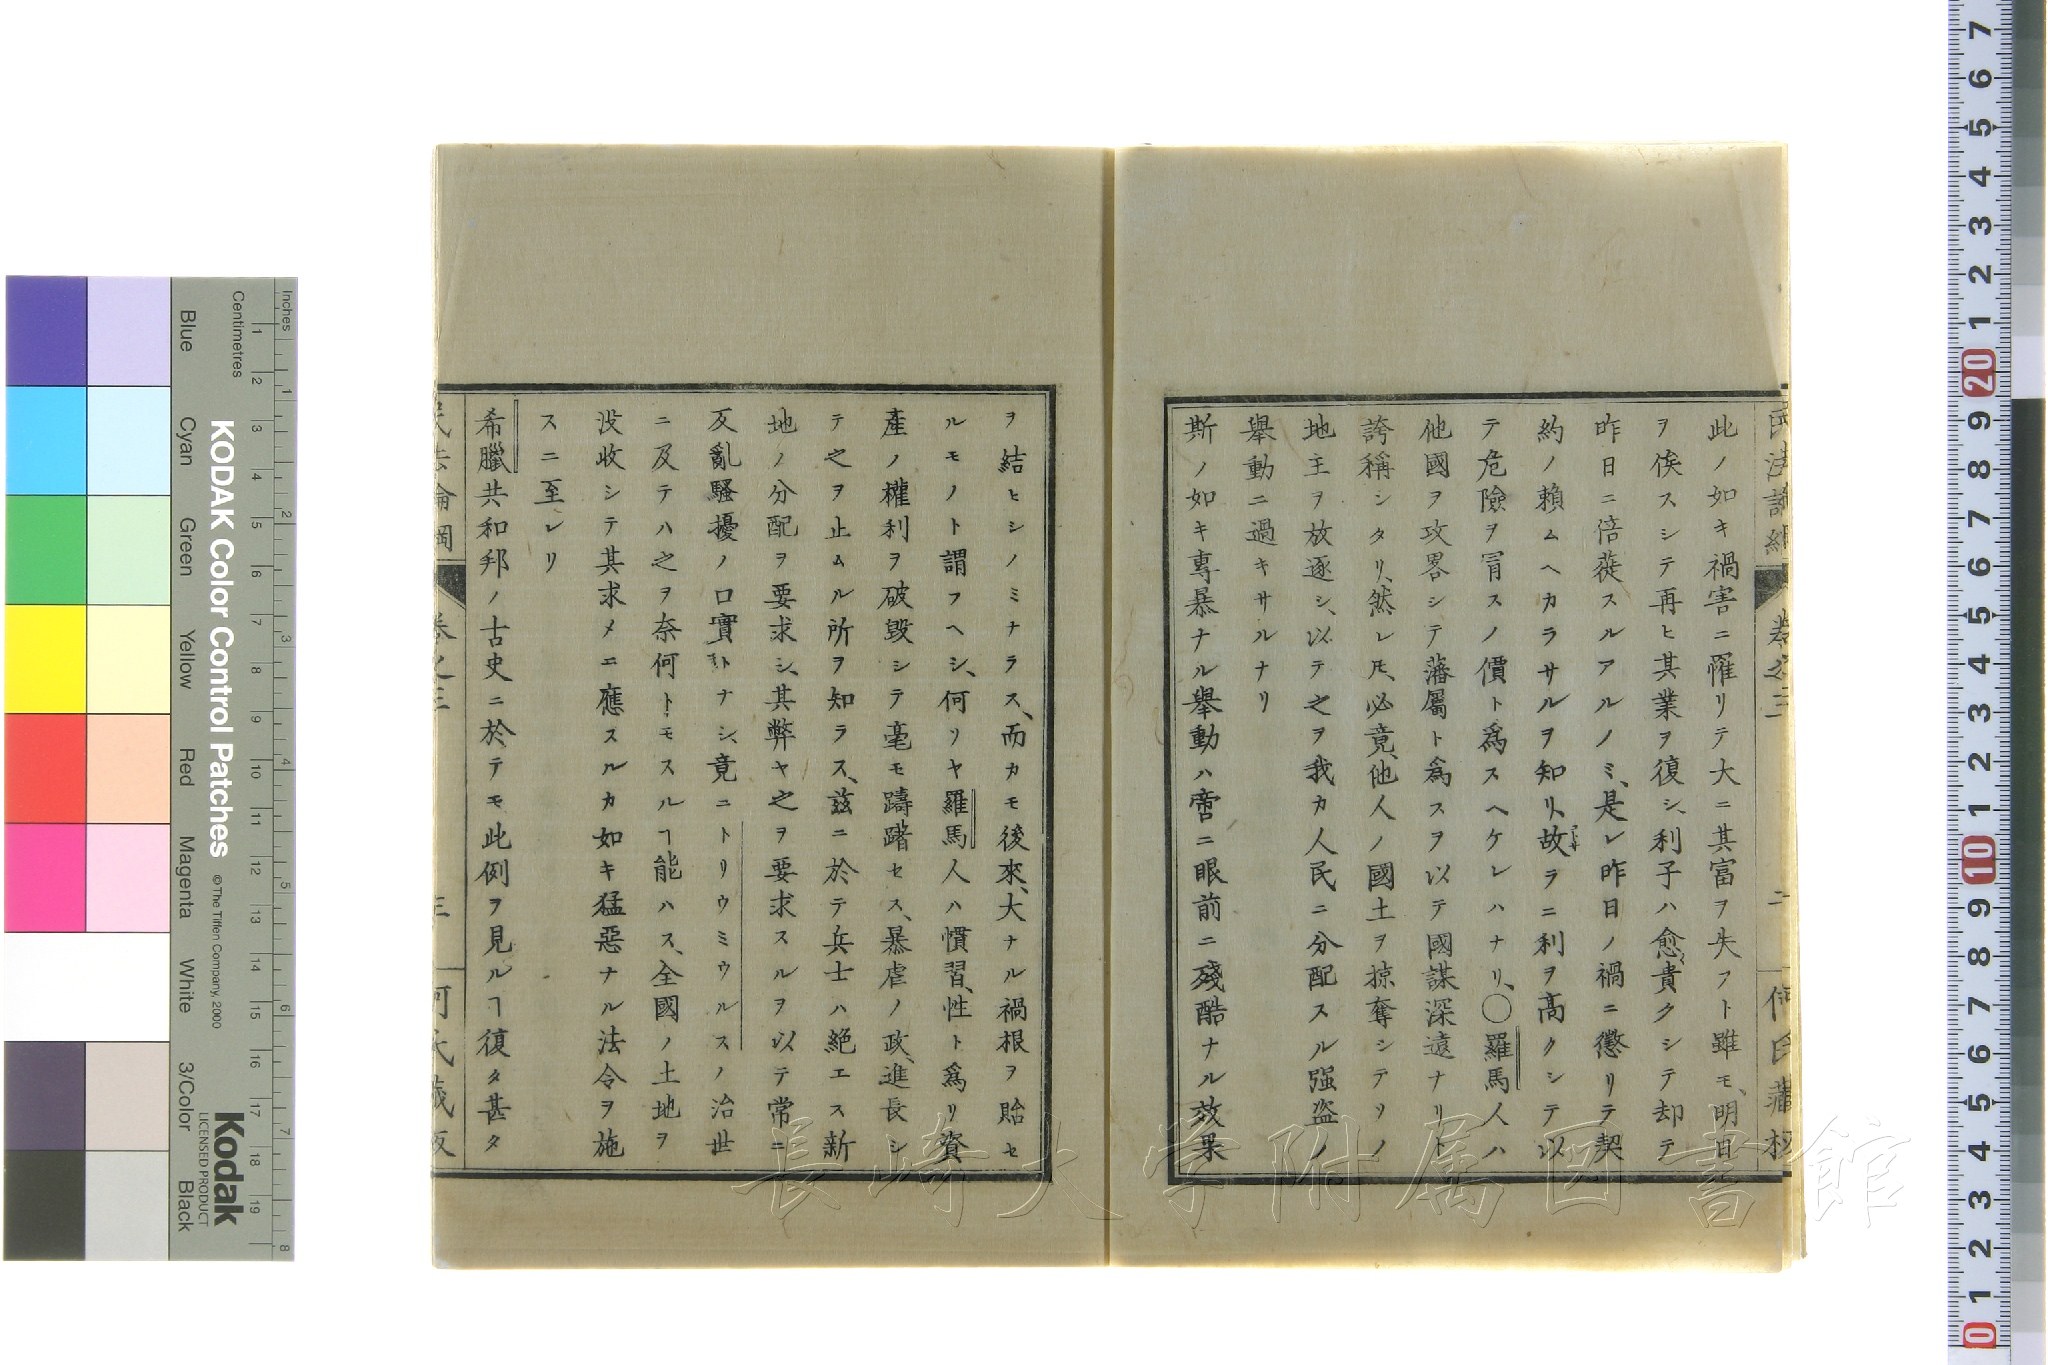 民法論綱 巻之三 二 何氏藏板
此ノ如キ禍害ニ罹リテ大ニ其富ヲ失フト雖モ、明日
ヲ俟スシテ再ヒ其業ヲ復シ、利子ハ愈貴クシテ却テ
昨日ニ倍蓰スルアルノミ、是レ昨日ノ禍ニ懲リテ契
約ノ賴ムヘカラサルヲ知リ、故ラニ利ヲ高クシテ以
テ危險ヲ冐スノ價ト爲スヘケレハナリ、〇羅馬人ハ
他國ヲ攻畧シテ藩屬ト爲スヲ以テ國謀深遠ナリト
誇稱シタリ、然レ𪜈、必竟他人ノ國土ヲ掠奪シテソノ
地主ヲ放逐シ、以テ之ヲ我カ人民ニ分配スル强盜ノ
舉動ニ過キサルナリ
斯ノ如キ專暴ナル舉動ハ啻ニ眼前ニ殘酷ナル效果
ヲ結ヒシノミナラス、而カモ後來、大ナル禍根ヲ貽セ
ルモノト謂フヘシ、何リヤ羅馬人ハ慣習、性ト爲リ資
產ノ權利ヲ破毀シテ毫モ躊躇セス、暴虐ノ政、進長シ
テ之ヲ止ムル所ヲ知ラス、茲ニ於テ兵士ハ絕エス新
地ノ分配ヲ要求シ、其弊ヤ之ヲ要求スルヲ以テ常ニ
反亂騷擾ノ口實トナシ、竟ニトリウミウルスノ治世
ニ及テハ之ヲ奈何トモスルヿ能ハス、全國ノ土地ヲ
没收シテ其求メニ應スルカ如キ猛惡ナル法令ヲ施
スニ至レリ
希臘共和邦ノ古史ニ於テモ此例ヲ見ルヿ復タ甚タ
民法論綱 巻之三 三 何氏藏板
長崎大学附属図書館
KODAK Color Control Patches
© The Tiffen Company, 2000
Kodak
LICENSED PRODUCT
Inches
1 2 3 4 5 6 7 8
Centimetres
1 2 3 4 5 6 7 8 9 10 11 12 13 14 15 16 17 18 19
Blue Cyan Green Yellow Red Magenta White 3/Color Black
0 1 2 3 4 5 6 7 8 9 10 1 2 3 4 5 6 7 8 9 20 1 2 3 4 5 6 7